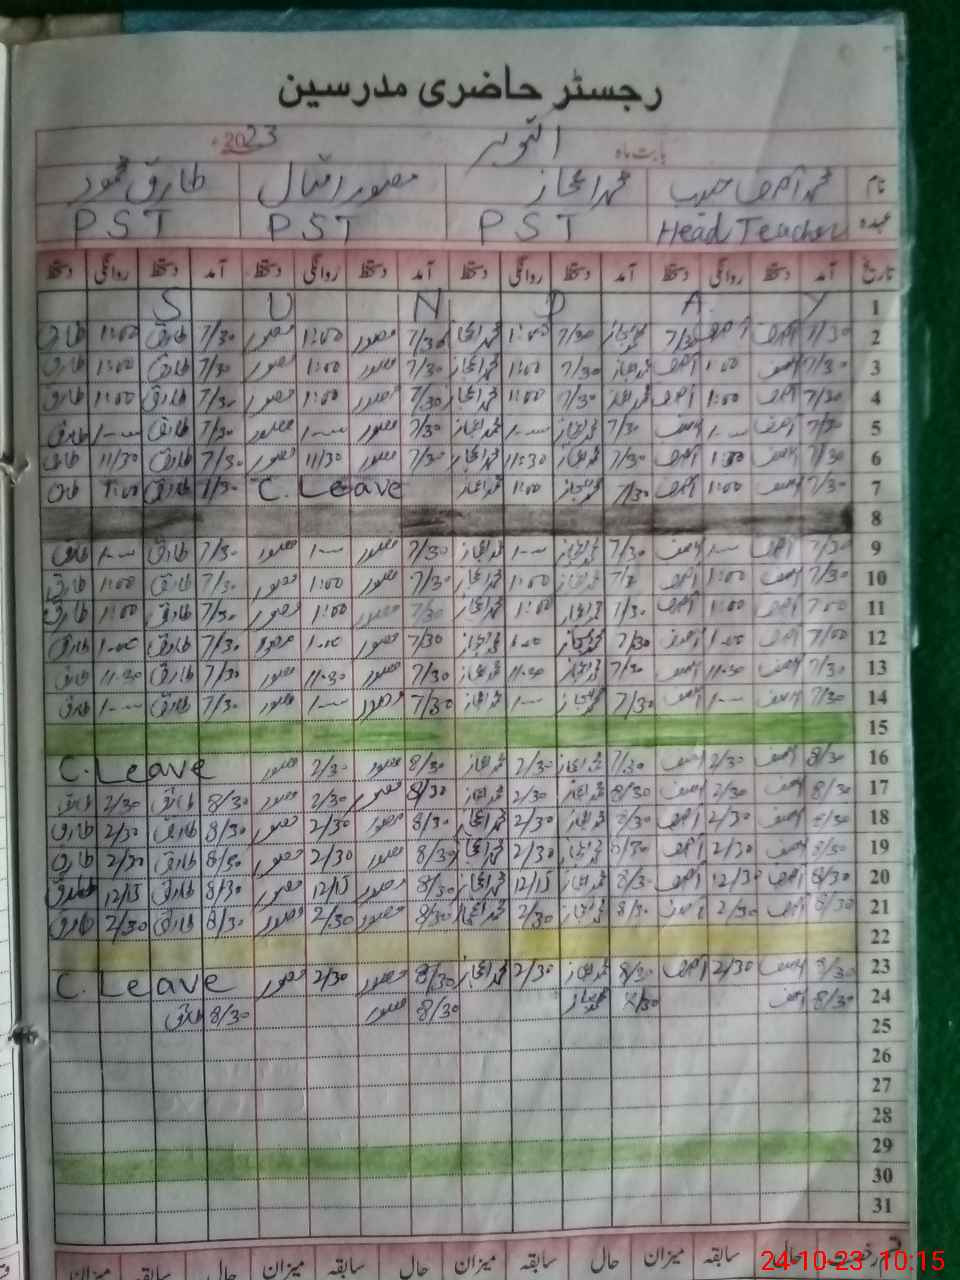 رجسٹر حاضری مدرسین
بابت ماہ اکتوبر 2023ء
نام محمد آصف حبیب محمد اعجاز منصور اقبال طارق محمود
عہدہ Head Teacher PST PST PST
تاریخ آمد دستخط روانگی دستخط آمد دستخط روانگی دستخط آمد دستخط روانگی دستخط آمد دستخط روانگی دستخط
1 S U N D A Y
2 7/30 آصف 7/30 1:00 محمد اعجاز 7/30 منصور 1:00 منصور 7/30 طارق 1:00 طارق
3 7/30 آصف 1:00 آصف محمد اعجاز 7/30 1:00 محمد اعجاز 7/30 منصور 1:00 منصور 7/30 طارق 1:00 طارق
4 7/30 آصف 1:00 آصف محمد اعجاز 7/30 1:00 محمد اعجاز 7/30 منصور 1:00 منصور 7/30 طارق 1:00 طارق
5 7/30 آصف آصف 7/30 محمد اعجاز محمد اعجاز 7/30 منصور منصور 7/30 طارق طارق
6 7/30 آصف آصف 7/30 محمد اعجاز 11:30 محمد اعجاز 7/30 منصور 11/30 منصور 7/30 طارق 11/30 طارق
7 7/30 آصف 1:00 آصف 7/30 محمد اعجاز 1:00 محمد اعجاز C. Leave طارق طارق
8
9 7/30 آصف آصف 7/30 محمد اعجاز محمد اعجاز 7/30 منصور منصور 7/30 طارق طارق
10 7/30 آصف 1:00 آصف محمد اعجاز 1:00 محمد اعجاز 7/30 منصور 1:00 منصور 7/30 طارق 1:00 طارق
11 7:00 آصف 1:00 آصف 7/30 محمد اعجاز 1:00 محمد اعجاز 7/30 منصور 1:00 منصور 7/30 طارق 1:00 طارق
12 7/00 آصف آصف 7/30 محمد اعجاز محمد اعجاز 7/30 منصور منصور 7/30 طارق طارق
13 7/30 آصف 11:30 آصف 7/30 محمد اعجاز 11:30 محمد اعجاز 7/30 منصور 11:30 منصور 7/30 طارق 11:30 طارق
14 7/30 آصف آصف 7/30 محمد اعجاز محمد اعجاز 7/30 منصور منصور 7/30 طارق طارق
15
16 8/30 آصف 2/30 آصف 7/30 محمد اعجاز 2/30 محمد اعجاز 8/30 منصور 2/30 منصور C. Leave
17 8/30 آصف 2/30 آصف 8/30 محمد اعجاز 2/30 محمد اعجاز 8/30 منصور 2/30 منصور 8/30 طارق 2/30 طارق
18 8/30 آصف 2/30 آصف 8/30 محمد اعجاز 2/30 محمد اعجاز 8/30 منصور 2/30 منصور 8/30 طارق 2/30 طارق
19 8/30 آصف 2/30 آصف 8/30 محمد اعجاز 2/30 محمد اعجاز 8/30 منصور 2/30 منصور 8/30 طارق 2/30 طارق
20 8/30 آصف 12/30 آصف 8/30 محمد اعجاز 12/15 محمد اعجاز 8/30 منصور 12/15 منصور 8/30 طارق 12/15 طارق
21 8/30 آصف 2/30 آصف 8/30 محمد اعجاز 2/30 محمد اعجاز 8/30 منصور 2/30 منصور 8/30 طارق 2/30 طارق
22
23 8/30 آصف 2/30 آصف 8/30 محمد اعجاز 2/30 محمد اعجاز 8/30 منصور 2/30 منصور C. Leave
24 8/30 آصف 8/30 محمد اعجاز 8/30 منصور 8/30 طارق
25
26
27
28
29
30
31
حال سابقہ میزان حال سابقہ میزان حال سابقہ میزان
24-10-23 10:15